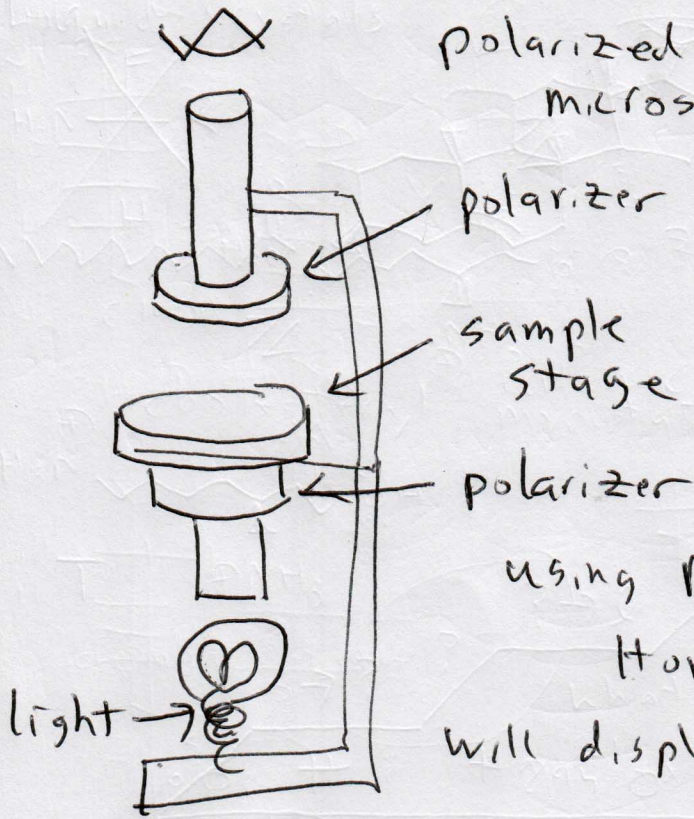 polarized
micros
polarizer
sample
stage
polarizer
using
light
will displ